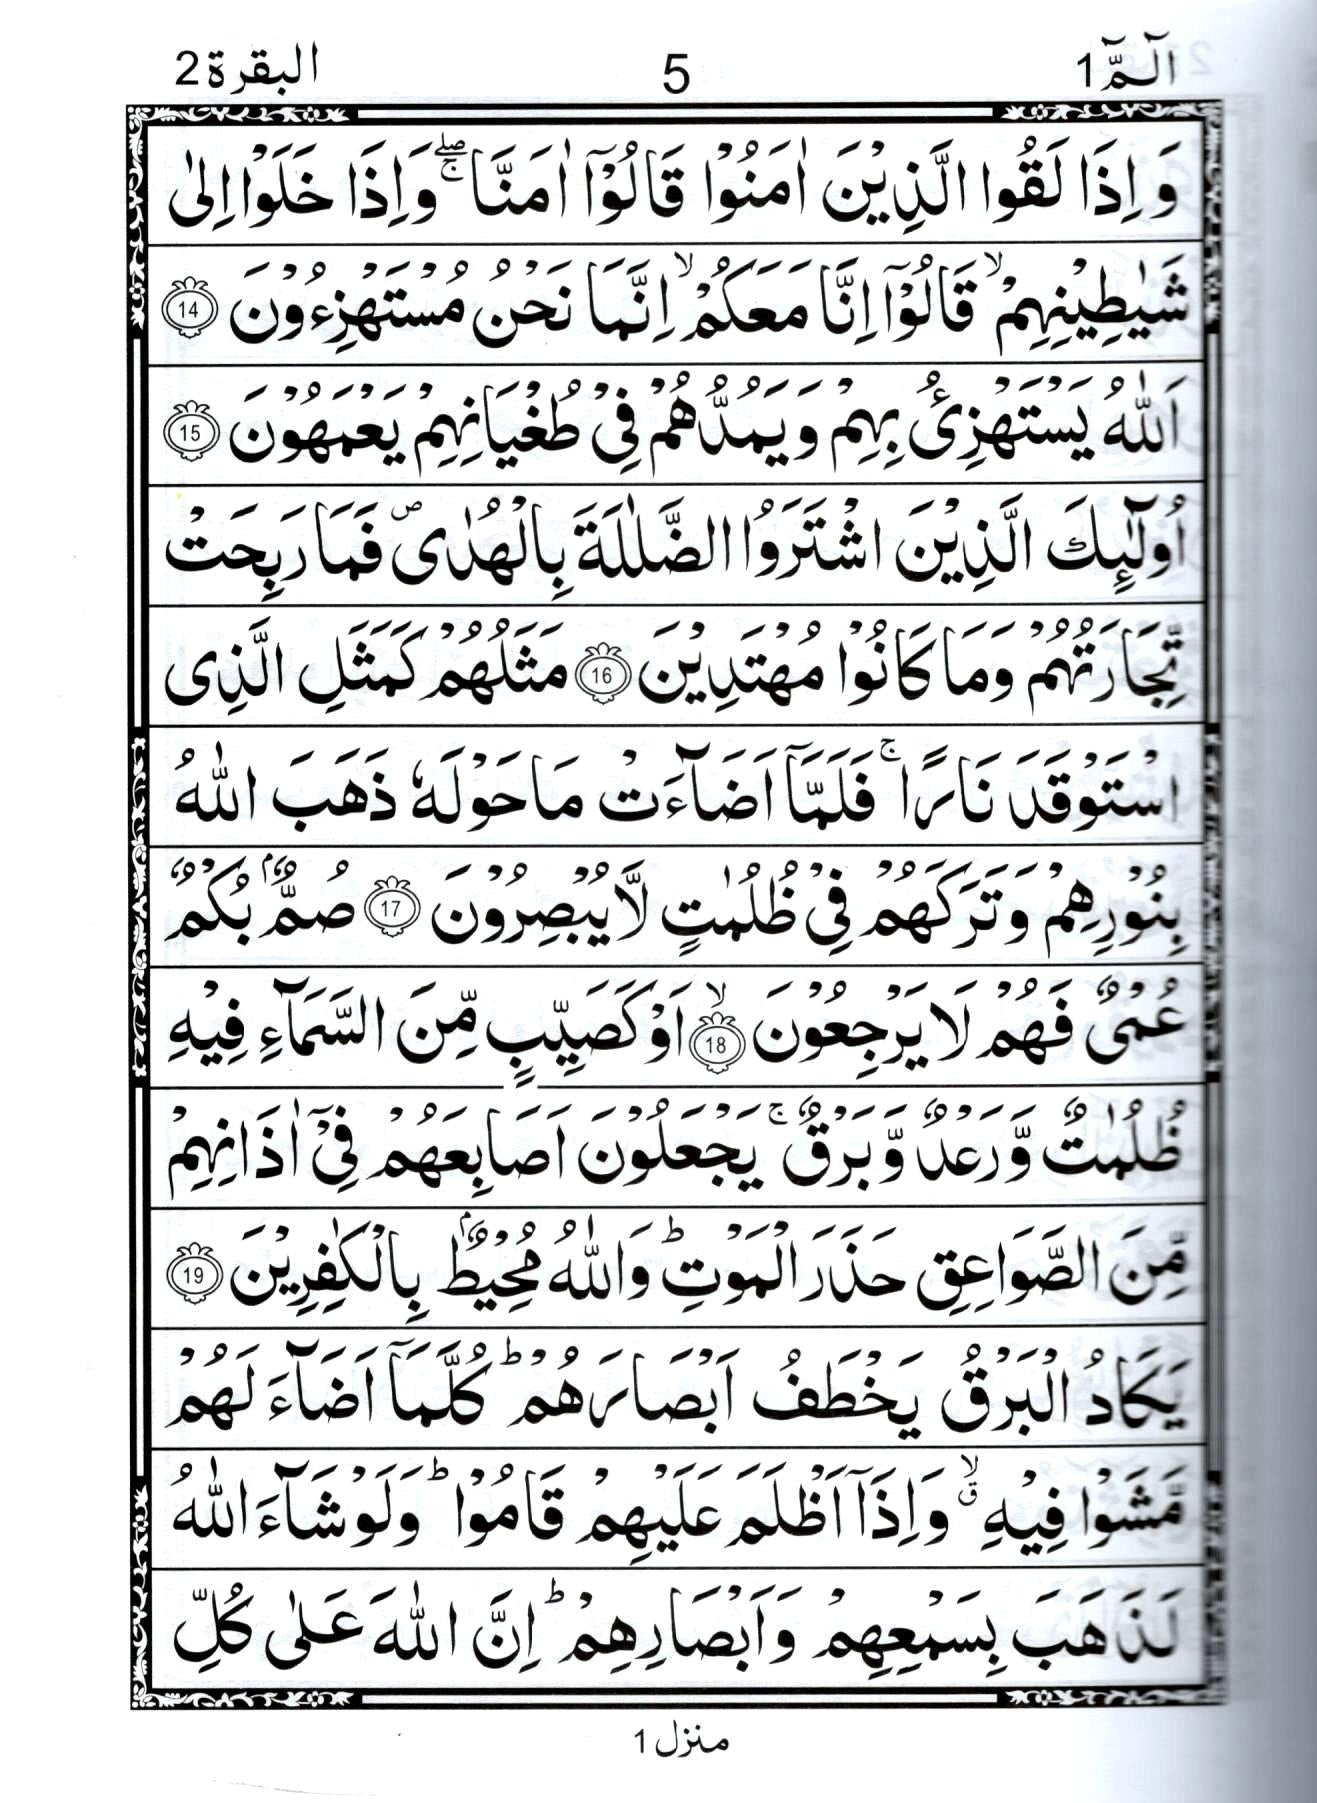 الٓمّٓ 1
5
البقرة 2
وَ اِذَا لَقُوا الَّذِيْنَ اٰمَنُوْا قَالُوْۤا اٰمَنَّا ۖۚ وَ اِذَا خَلَوْا اِلٰى
شَيٰطِيْنِهِمْ ۙ قَالُوْۤا اِنَّا مَعَكُمْ ۙ اِنَّمَا نَحْنُ مُسْتَهْزِءُوْنَ 14
اَللّٰهُ يَسْتَهْزِئُ بِهِمْ وَ يَمُدُّهُمْ فِيْ طُغْيَانِهِمْ يَعْمَهُوْنَ 15
اُولٰٓىِٕكَ الَّذِيْنَ اشْتَرَوُا الضَّلٰلَةَ بِالْهُدٰى ۪ فَمَا رَبِحَتْ
تِّجَارَتُهُمْ وَ مَا كَانُوْا مُهْتَدِيْنَ 16 مَثَلُهُمْ كَمَثَلِ الَّذِى
اسْتَوْقَدَ نَارًا ۚ فَلَمَّاۤ اَضَآءَتْ مَا حَوْلَهٗ ذَهَبَ اللّٰهُ
بِنُوْرِهِمْ وَ تَرَكَهُمْ فِيْ ظُلُمٰتٍ لَّا يُبْصِرُوْنَ 17 صُمٌّۢ بُكْمٌ
عُمْىٌ فَهُمْ لَا يَرْجِعُوْنَ ۙ 18 اَوْ كَصَيِّبٍ مِّنَ السَّمَآءِ فِيْهِ
ظُلُمٰتٌ وَّ رَعْدٌ وَّ بَرْقٌ ۚ يَجْعَلُوْنَ اَصَابِعَهُمْ فِيْۤ اٰذَانِهِمْ
مِّنَ الصَّوَاعِقِ حَذَرَ الْمَوْتِ ؕ وَ اللّٰهُ مُحِيْطٌۢ بِالْكٰفِرِيْنَ 19
يَكَادُ الْبَرْقُ يَخْطَفُ اَبْصَارَهُمْ ؕ كُلَّمَاۤ اَضَآءَ لَهُمْ
مَّشَوْا فِيْهِ ۙۗ وَ اِذَاۤ اَظْلَمَ عَلَيْهِمْ قَامُوْا ؕ وَ لَوْ شَآءَ اللّٰهُ
لَذَهَبَ بِسَمْعِهِمْ وَ اَبْصَارِهِمْ ؕ اِنَّ اللّٰهَ عَلٰى كُلِّ
منزل 1